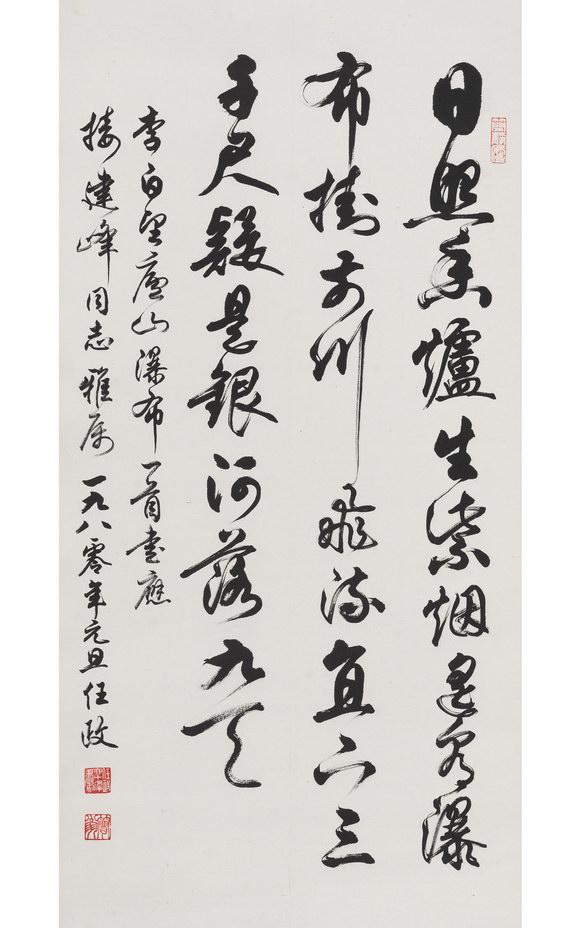 日照香爐生紫烟遥看瀑
布掛前川飛流直下三
千尺疑是銀河落九天
李白望廬山瀑布一首書應
建峰同志雅属一九八零年元旦任政